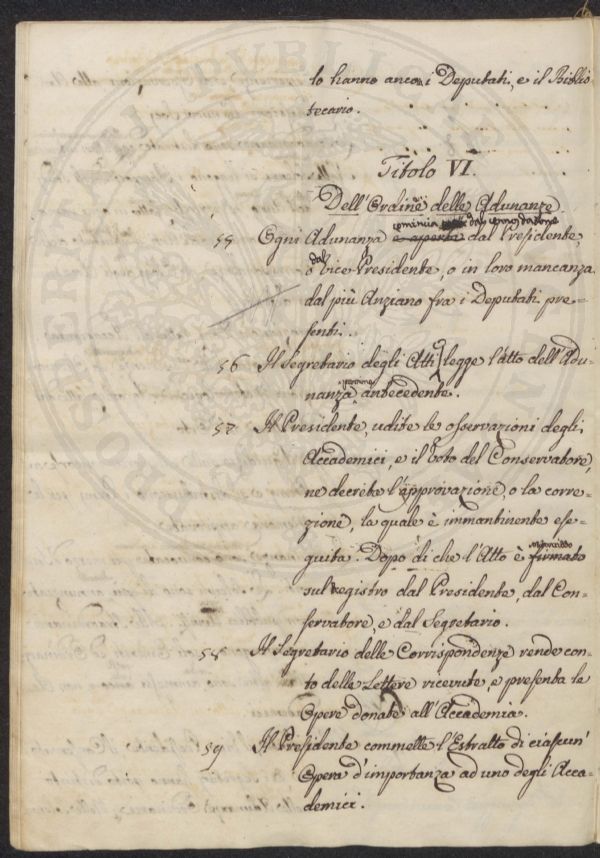 lo hanno anco i Deputati, e il Biblio-
tecario.
Titolo VI.
Dell'Ordine delle Adunanze.
comincia dal
55 Ogni Adunanza è aperta dal Presidente,
o dal Vice Presidente, o in loro mancanza
dal più Anziano fra i Deputati pre=
senti.
56 Il Segretario degli Atti legge l'atto dell'Adu=
nanza antecedente.
57 Il Presidente, udite le osservazioni degli
Accademici, e il Voto del Conservatore,
ne decreta l'approvazione, o la corre=
zione, la quale è immantinente ese=
guita. Dopo di che l'Atto è firmato
sul registro dal Presidente, dal Con=
servatore, e dal Segretario.
58 Il Segretario delle Corrispondenze rende con=
to delle Lettere ricevute, e presenta le
Opere donate all'Accademia.
59 Il Presidente commette l'Estratto di ciascun'
Opera d'importanza ad uno degli Acca=
demici.